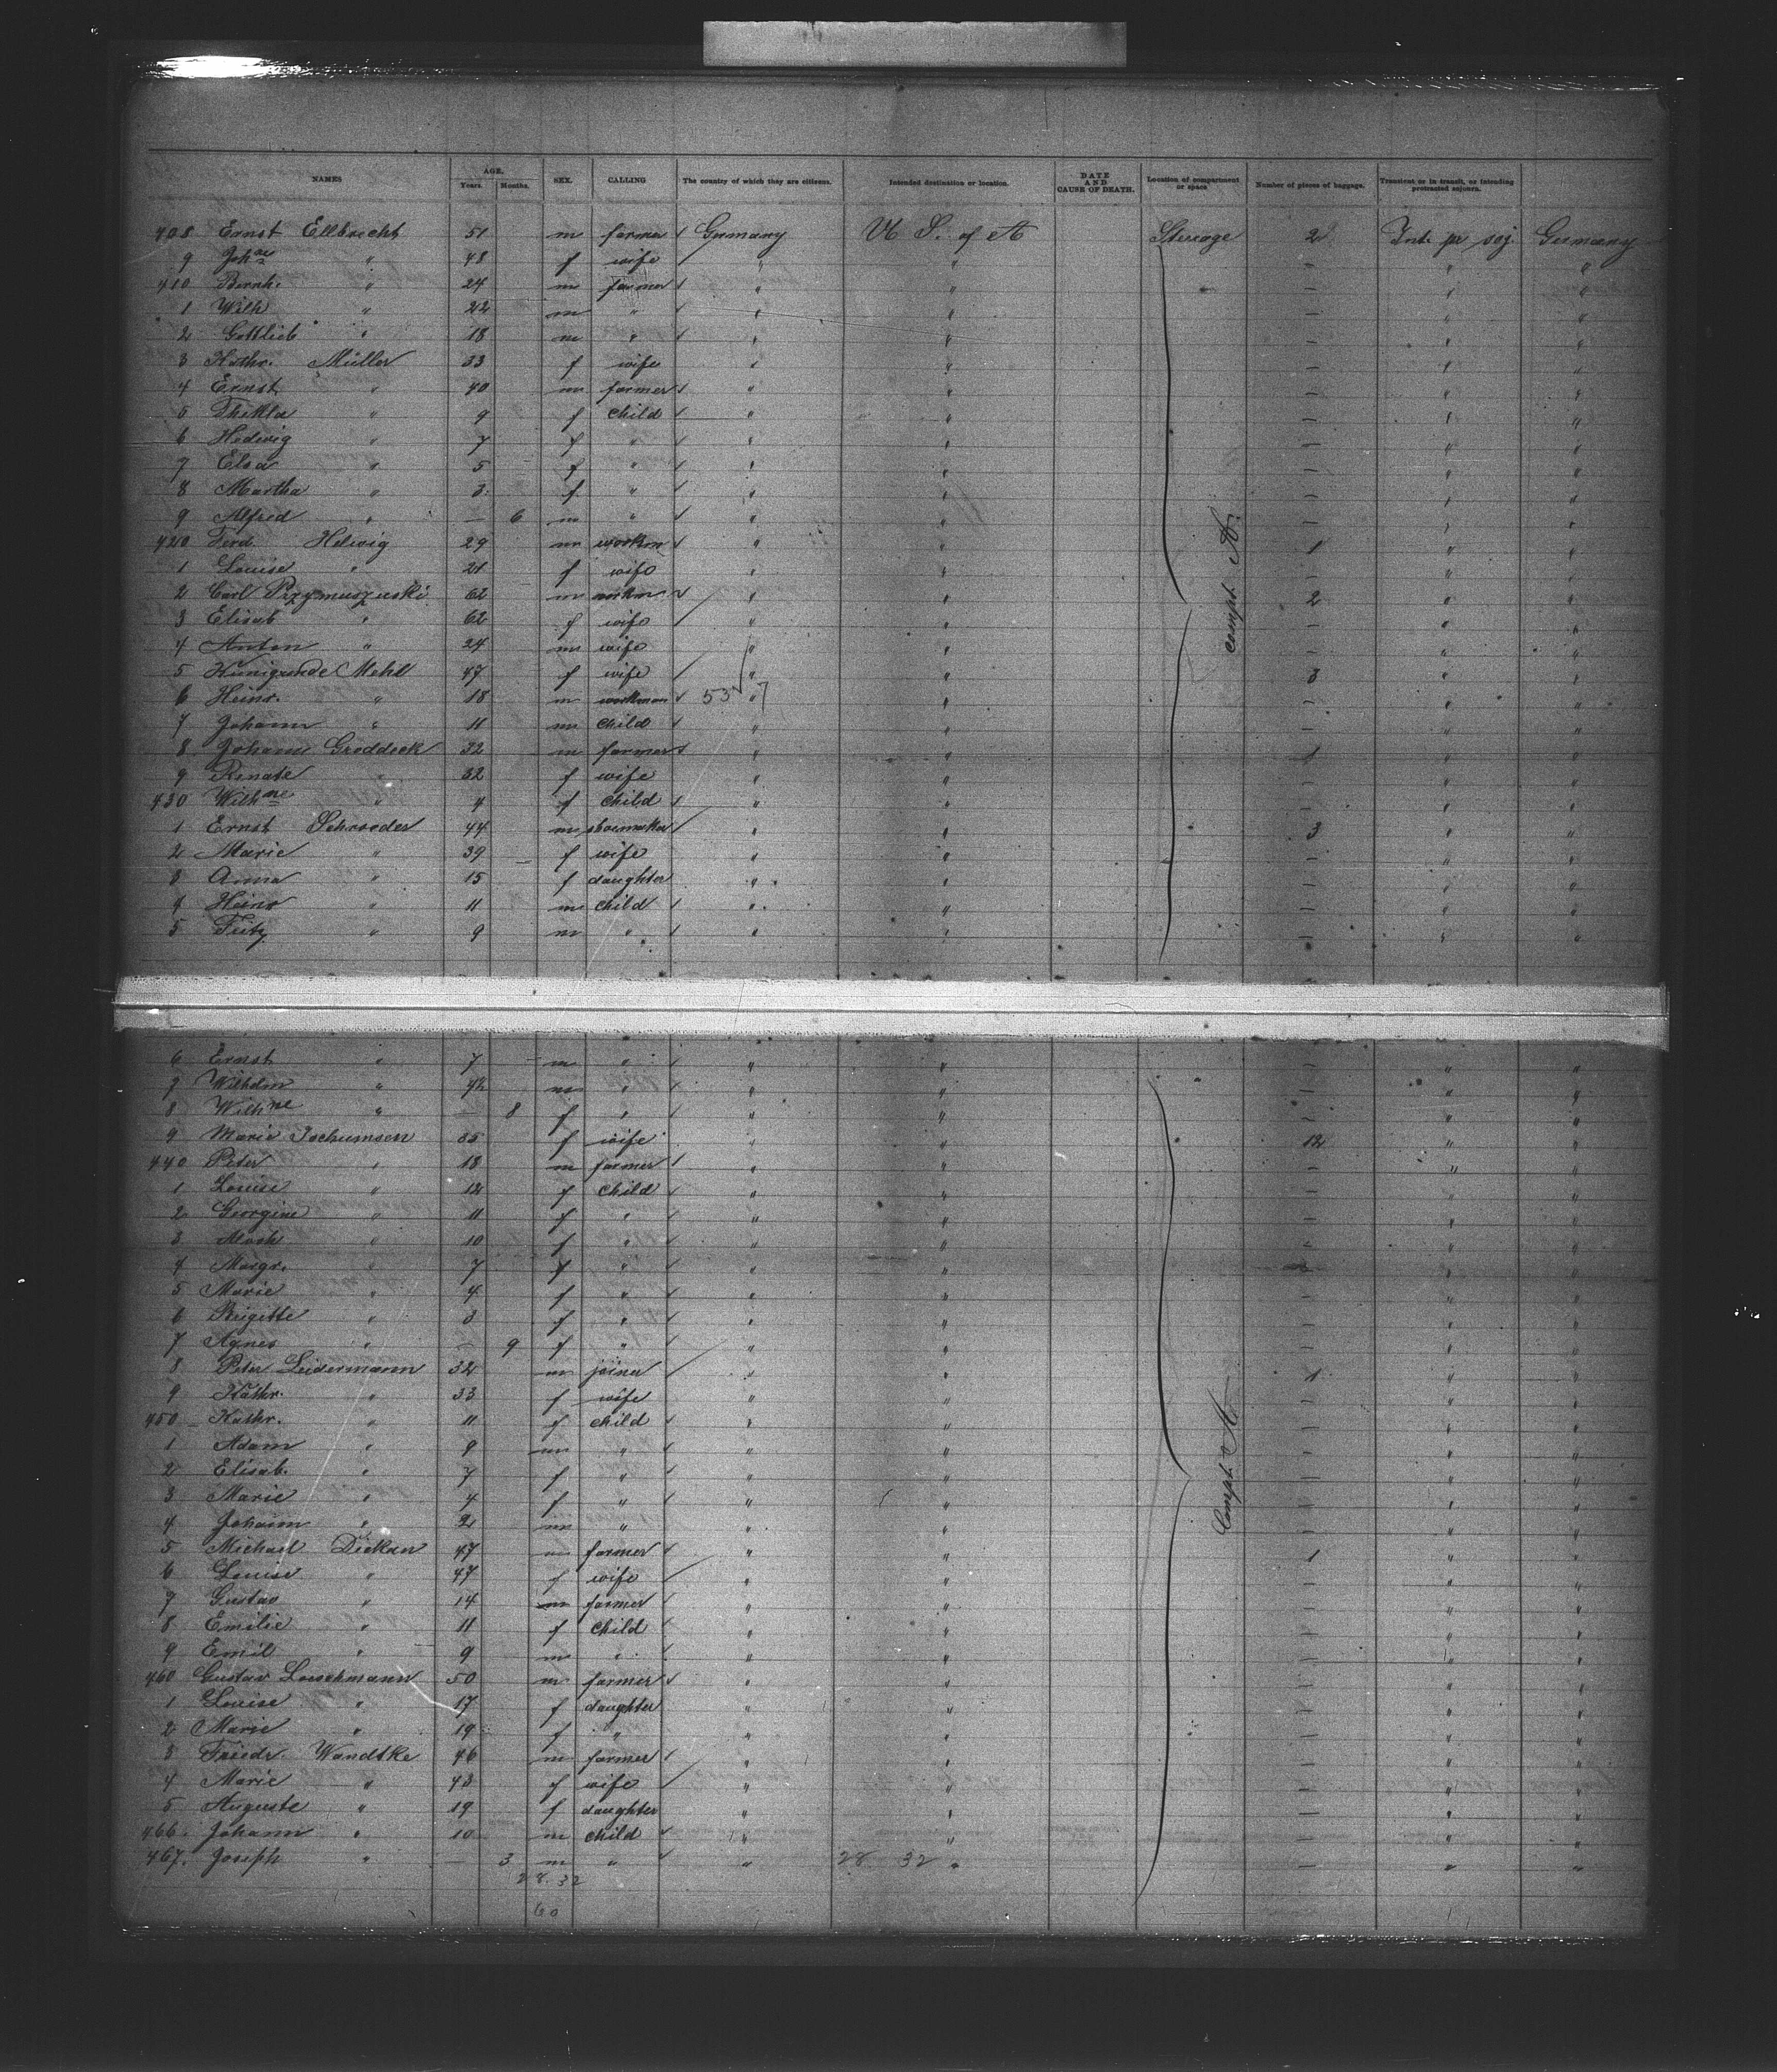 NAMES AGE. Years. Months. SEX. CALLING The country of which they are citizens. Intended destination or location. DATE AND CAUSE OF DEATH. Location of compartment or space Number of pieces of baggage. Transient or in transit, or intending protracted sojourn.
408 Ernst Ellbrecht 51 m farmer Germany U S. of A Steerage 2 Int. pr soj. Germany
9 Joh ne " 48 f wife " " — " "
410 Bernh. " 24 m farmer " " — " "
1 Wilh " 22 m " " " — " "
2 Gottlieb " 18 m " " " — " "
3 Kathr. Müller 33 f wife " " — " "
4 Ernst " 40 m farmer " " — " "
5 Thekla " 9 f child " " — " "
6 Hedwig " 7 f " " " — " "
7 Elsa " 5 f " " " — " "
8 Martha " 3 f " " " — " "
9 Alfred " — 6 m " " " — " "
420 Ferd. Helwig 29 m workm " " 1 " "
1 Louise " 21 f wife " " — " "
2 Carl Przymuszuski 62 m workm " " 2 " "
3 Elisab " 62 f wife " " — " "
4 Anton " 24 m wife " " — " "
5 Kunigunde Mehl 47 f wife " " 3 " "
6 Heinr. " 18 m workman 53 " 7 " — " "
7 Johann " 11 m child " " — " "
8 Johann Groddeck 32 m farmer " " 1 " "
9 Renate " 32 f wife " " — " "
430 Wilh ne " 4 f child " " — " "
1 Ernst Schroeder 44 m shoemaker " " 3 " "
2 Marie " 39 f wife " " — " "
3 Anna " 15 f daughter " " — " "
4 Heinr " 11 m child " " — " "
5 Fritz " 9 m " " " — " "
compt. A.
6 Ernst " 7 m " " " — " "
7 Wilhelm " 4 1/2 m " " " — " "
8 Wilh ne " — 8 f " " " — " "
9 Maria Jochumsen 35 f wife " " 12 " "
440 Peter " 18 m farmer " " — " "
1 Louise " 12 f child " " — " "
2 Georgine " 11 f " " " — " "
3 10 f " " " — " "
4 Margr. " 7 f " " " — " "
5 Marie " 4 f " " " — " "
6 Brigitte " 3 f " " " — " "
7 Agnes " — 9 f " " " — " "
8 Peter Leidermann 32 m joiner " " 1 " "
9 Kathr. " 33 f wife " " — " "
450 Kathr. " 11 f child " " — " "
1 Adam " 9 m " " " — " "
2 Elisab. " 7 f " " " — " "
3 Marie " 4 f " " " — " "
4 Johann " 2 m " " " — " "
5 Michael Dickan 47 m farmer " " 1 " "
6 Louise " 47 f wife " " — " "
7 Gustav " 14 m farmer " " — " "
8 Emilie " 11 f child " " — " "
9 Emil " 9 m " " " — " "
460 Gustav Loeschmann 50 m farmer " " — " "
1 Louise " 17 f daughter " " — " "
2 Marie " 19 f " " " — " "
3 Friedr. Wandtke 46 m farmer " " — " "
4 Marie " 43 f wife " " — " "
5 Auguste " 19 f daughter " " — " "
466. Johann " 10 m child " " — " "
467. Joseph " — 3 m " " 28 32 " — " "
Compt. A.
28. 32
60